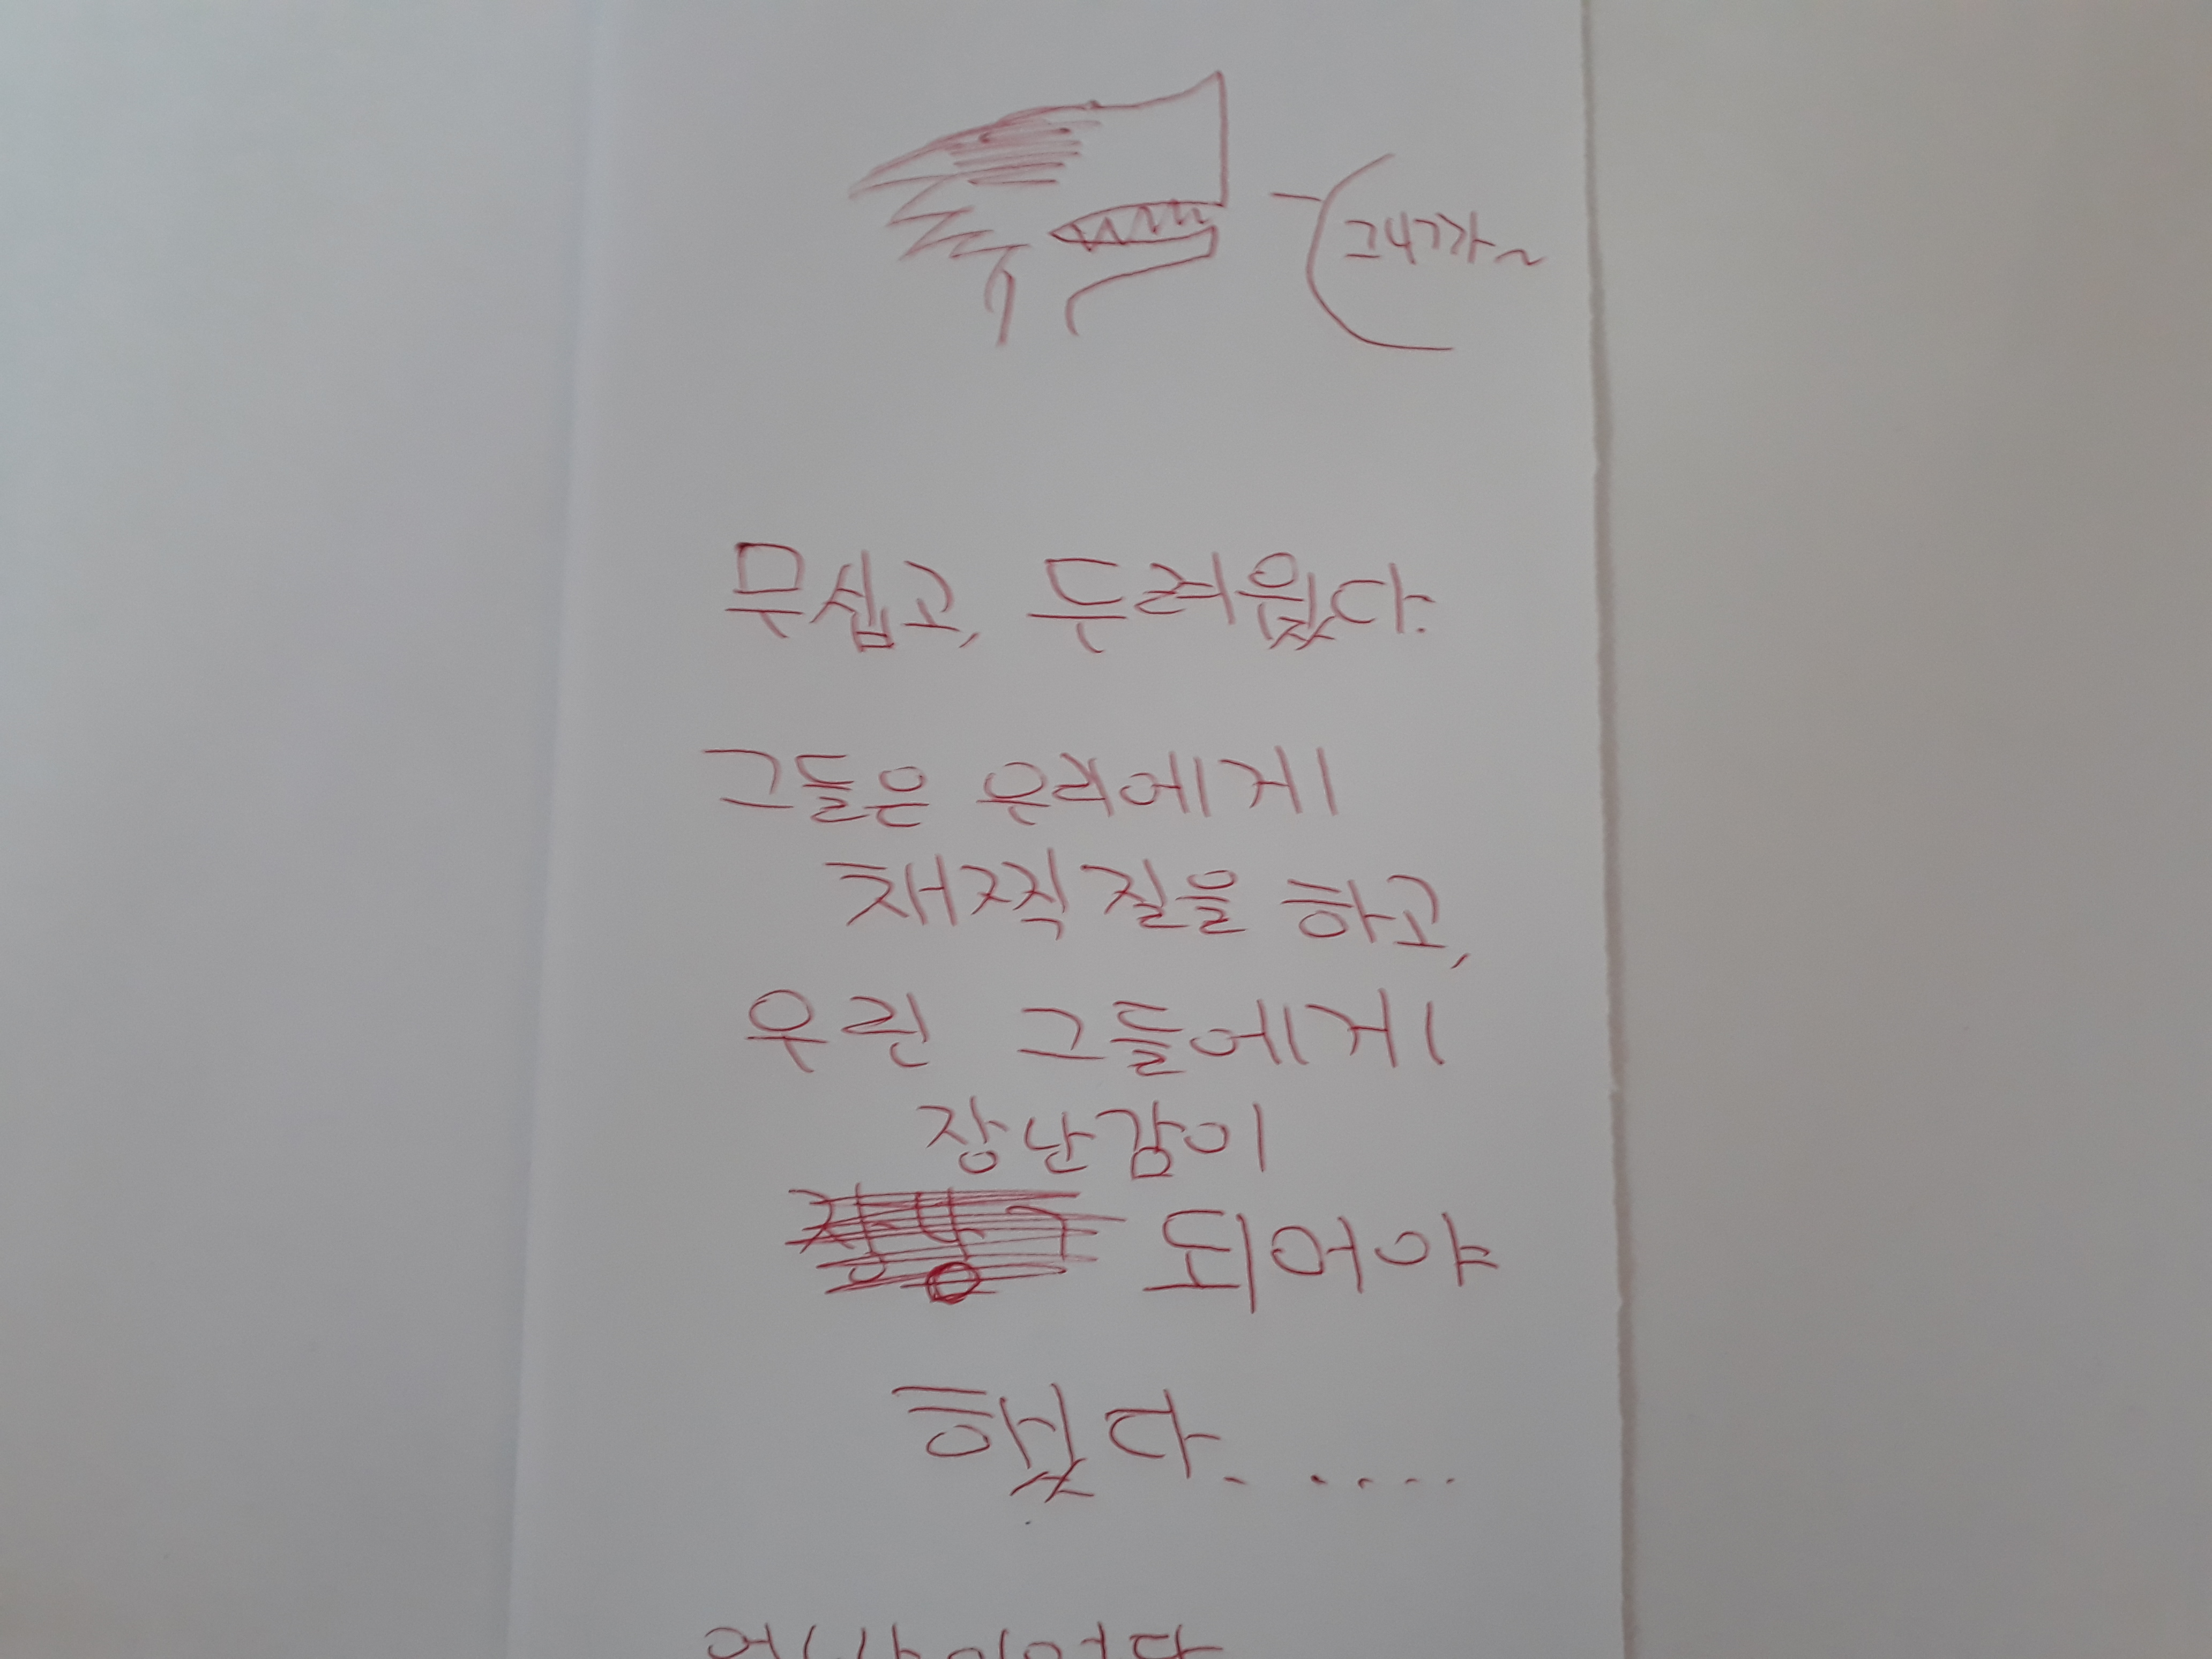 무섭고, 두려웠다.
그들은 우리에게
채찍질을 하고,
우린 그들에게
장난감이
되어야
했다. . . . . .